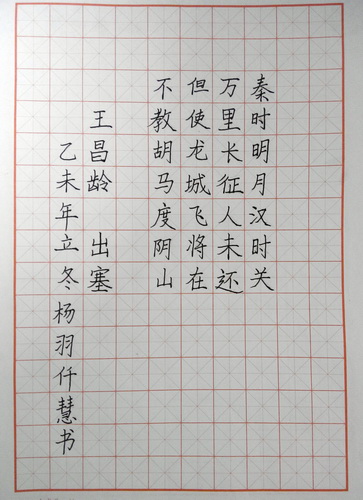 秦时明月汉时关
万里长征人未还
但使龙城飞将在
不教胡马度阴山
王昌龄 出塞
乙未年立冬杨羽仟慧书